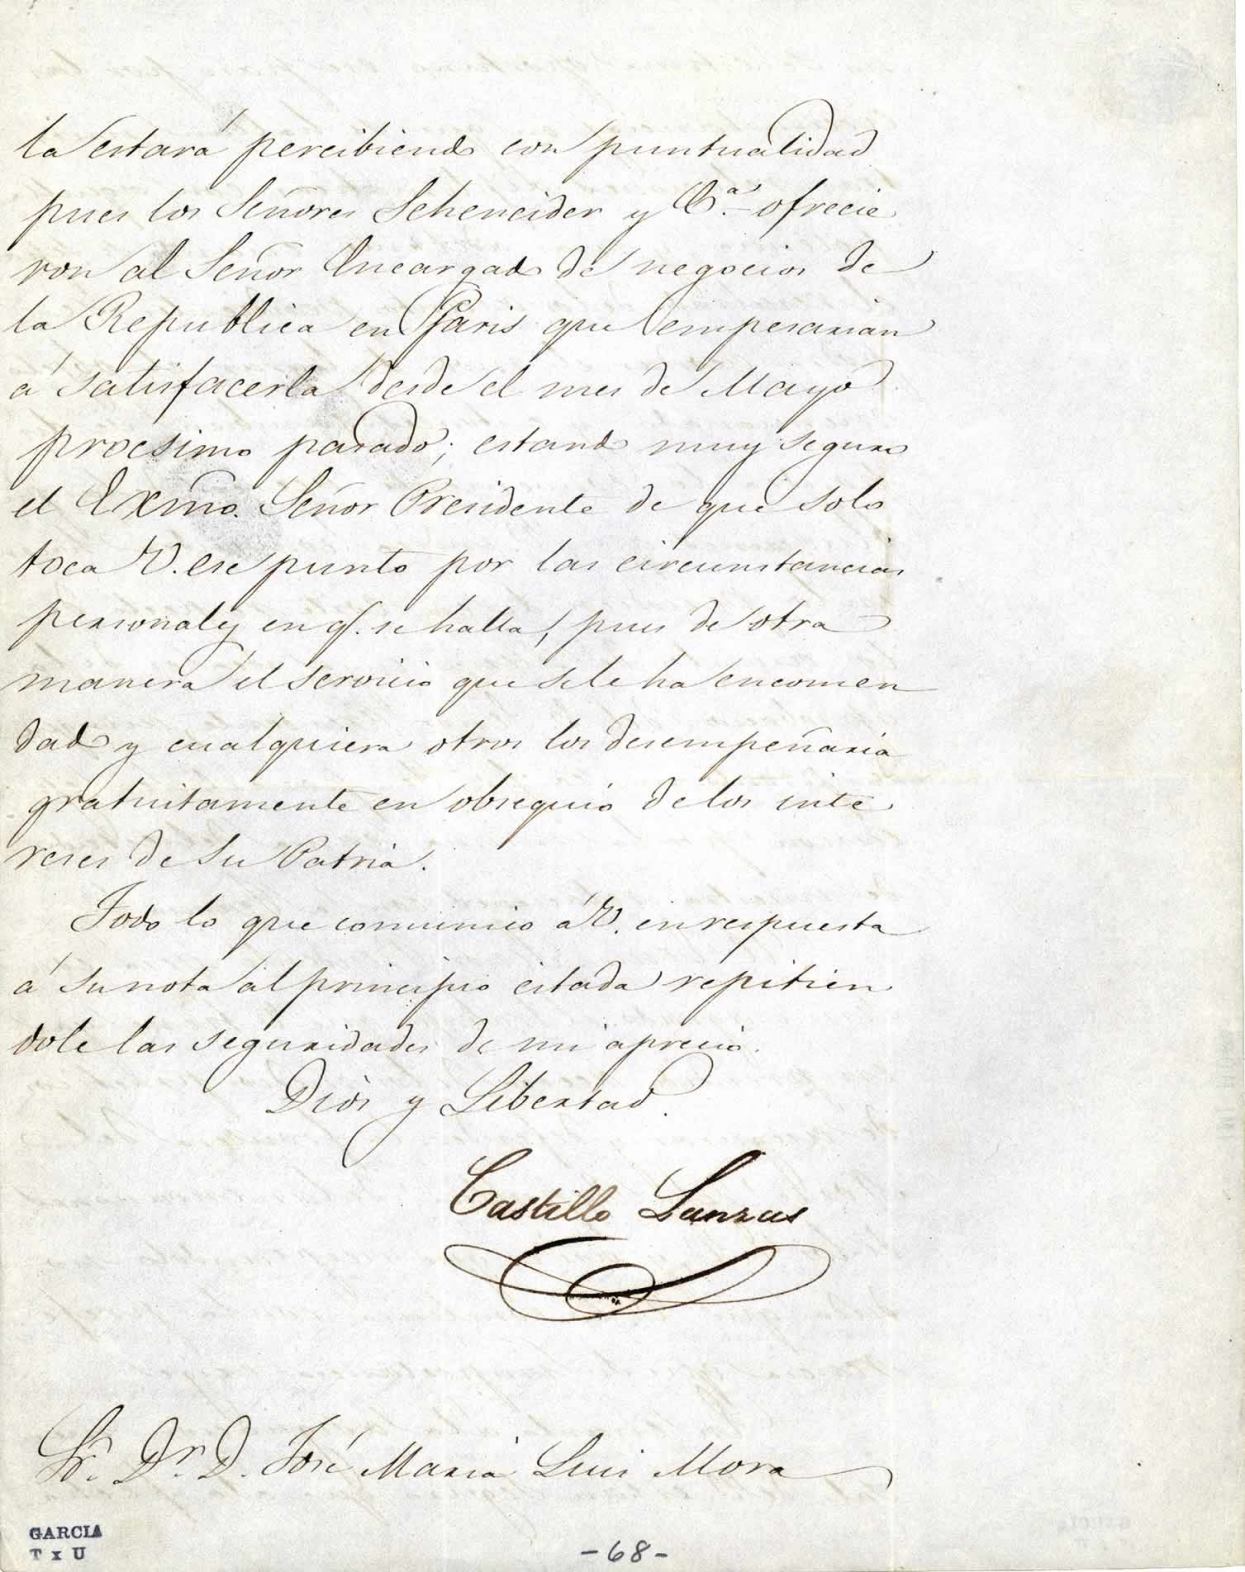 la estará percibiendo con puntualidad
pues los Señores Scheneider y C.ª ofrecie
ron al Señor Encargado de negocios de
la Republica en Paris que empesarian
á satisfacerla desde el mes de Mayo
procsimo pasado; estando muy seguro
el Exmo. Señor Presidente de que solo
toca V. ese punto por las circunstancias
personales en q. se halla, pues de otra
manera el servicio que se le ha encomen
dado y cualquiera otros los desempeñaria
gratuitamente en obsequio de los inte
reses de su Patria.
Todo lo que comunico á V. en respuesta
á su nota al principio citada repitien
dole las seguridades de mi aprecio.
Dios y Libertad.
Castillo Lanzas
Sr. Dr. D. José Maria Luis Mora
GARCIA
T x U
-68-